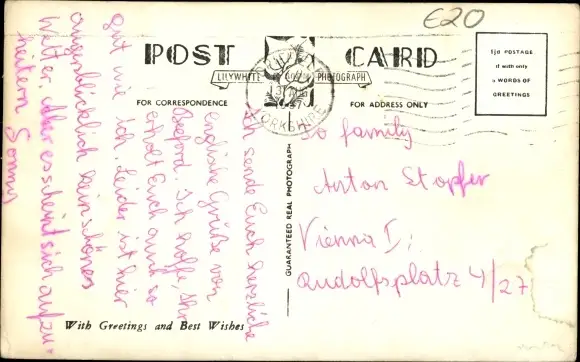 £20
POST CARD
LILYWHITE PHOTOGRAPH
FOR CORRESPONDENCE
FOR ADDRESS ONLY
1½d POSTAGE
if with only
5 WORDS OF
GREETINGS
YORKSHIRE
GUARANTEED REAL PHOTOGRAPH
To family
Anton Stopfer
Vienna I;
Rudolfsplatz 4/27
Ich sende Euch herzliche
englische Grüße von
Ich hoffe, Ihr
erholt Euch auch so
gut wie ich. Leider ist hier
augenblicklich kein schönes
Wetter. Aber es scheint sich aufzu-
heitern
With Greetings and Best Wishes